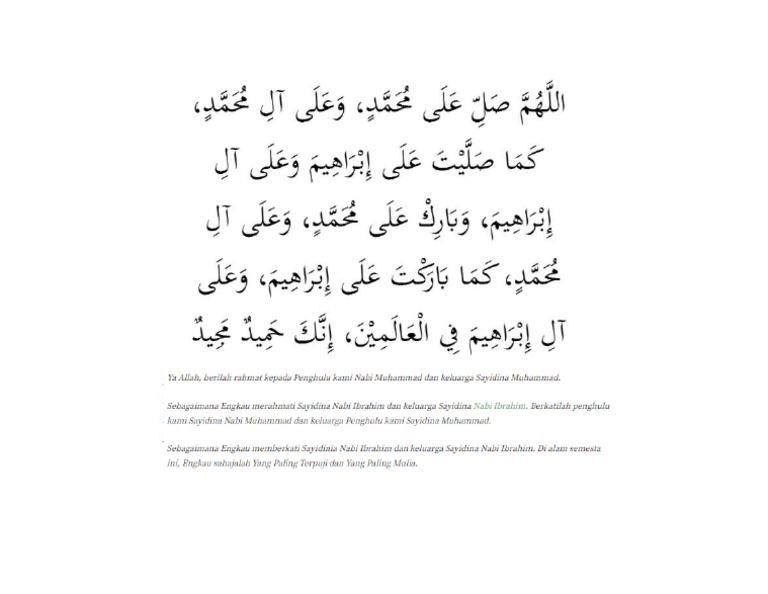 اللَّهُمَّ صَلِّ عَلَى مُحَمَّدٍ، وَعَلَى آلِ مُحَمَّدٍ،
كَمَا صَلَّيْتَ عَلَى إِبْرَاهِيمَ وَعَلَى آلِ
إِبْرَاهِيمَ، وَبَارِكْ عَلَى مُحَمَّدٍ، وَعَلَى آلِ
مُحَمَّدٍ، كَمَا بَارَكْتَ عَلَى إِبْرَاهِيمَ، وَعَلَى
آلِ إِبْرَاهِيمَ فِي الْعَالَمِيْنَ، إِنَّكَ حَمِيدٌ مَجِيدٌ
Ya Allah, berilah rahmat kepada Penghulu kami Nabi Muhammad dan keluarga Sayidina Muhammad.
Sebagaimana Engkau merahmati Sayidina Nabi Ibrahim dan keluarga Sayidina Nabi Ibrahim. Berkatilah penghulu
kami Sayidina Nabi Muhammad dan keluarga Penghulu kami Sayidina Muhammad.
Sebagaimana Engkau memberkati Sayidinia Nabi Ibrahim dan keluarga Sayidina Nabi Ibrahim. Di alam semesta
ini, Engkau sahajalah Yang Paling Terpuji dan Yang Paling Mulia.